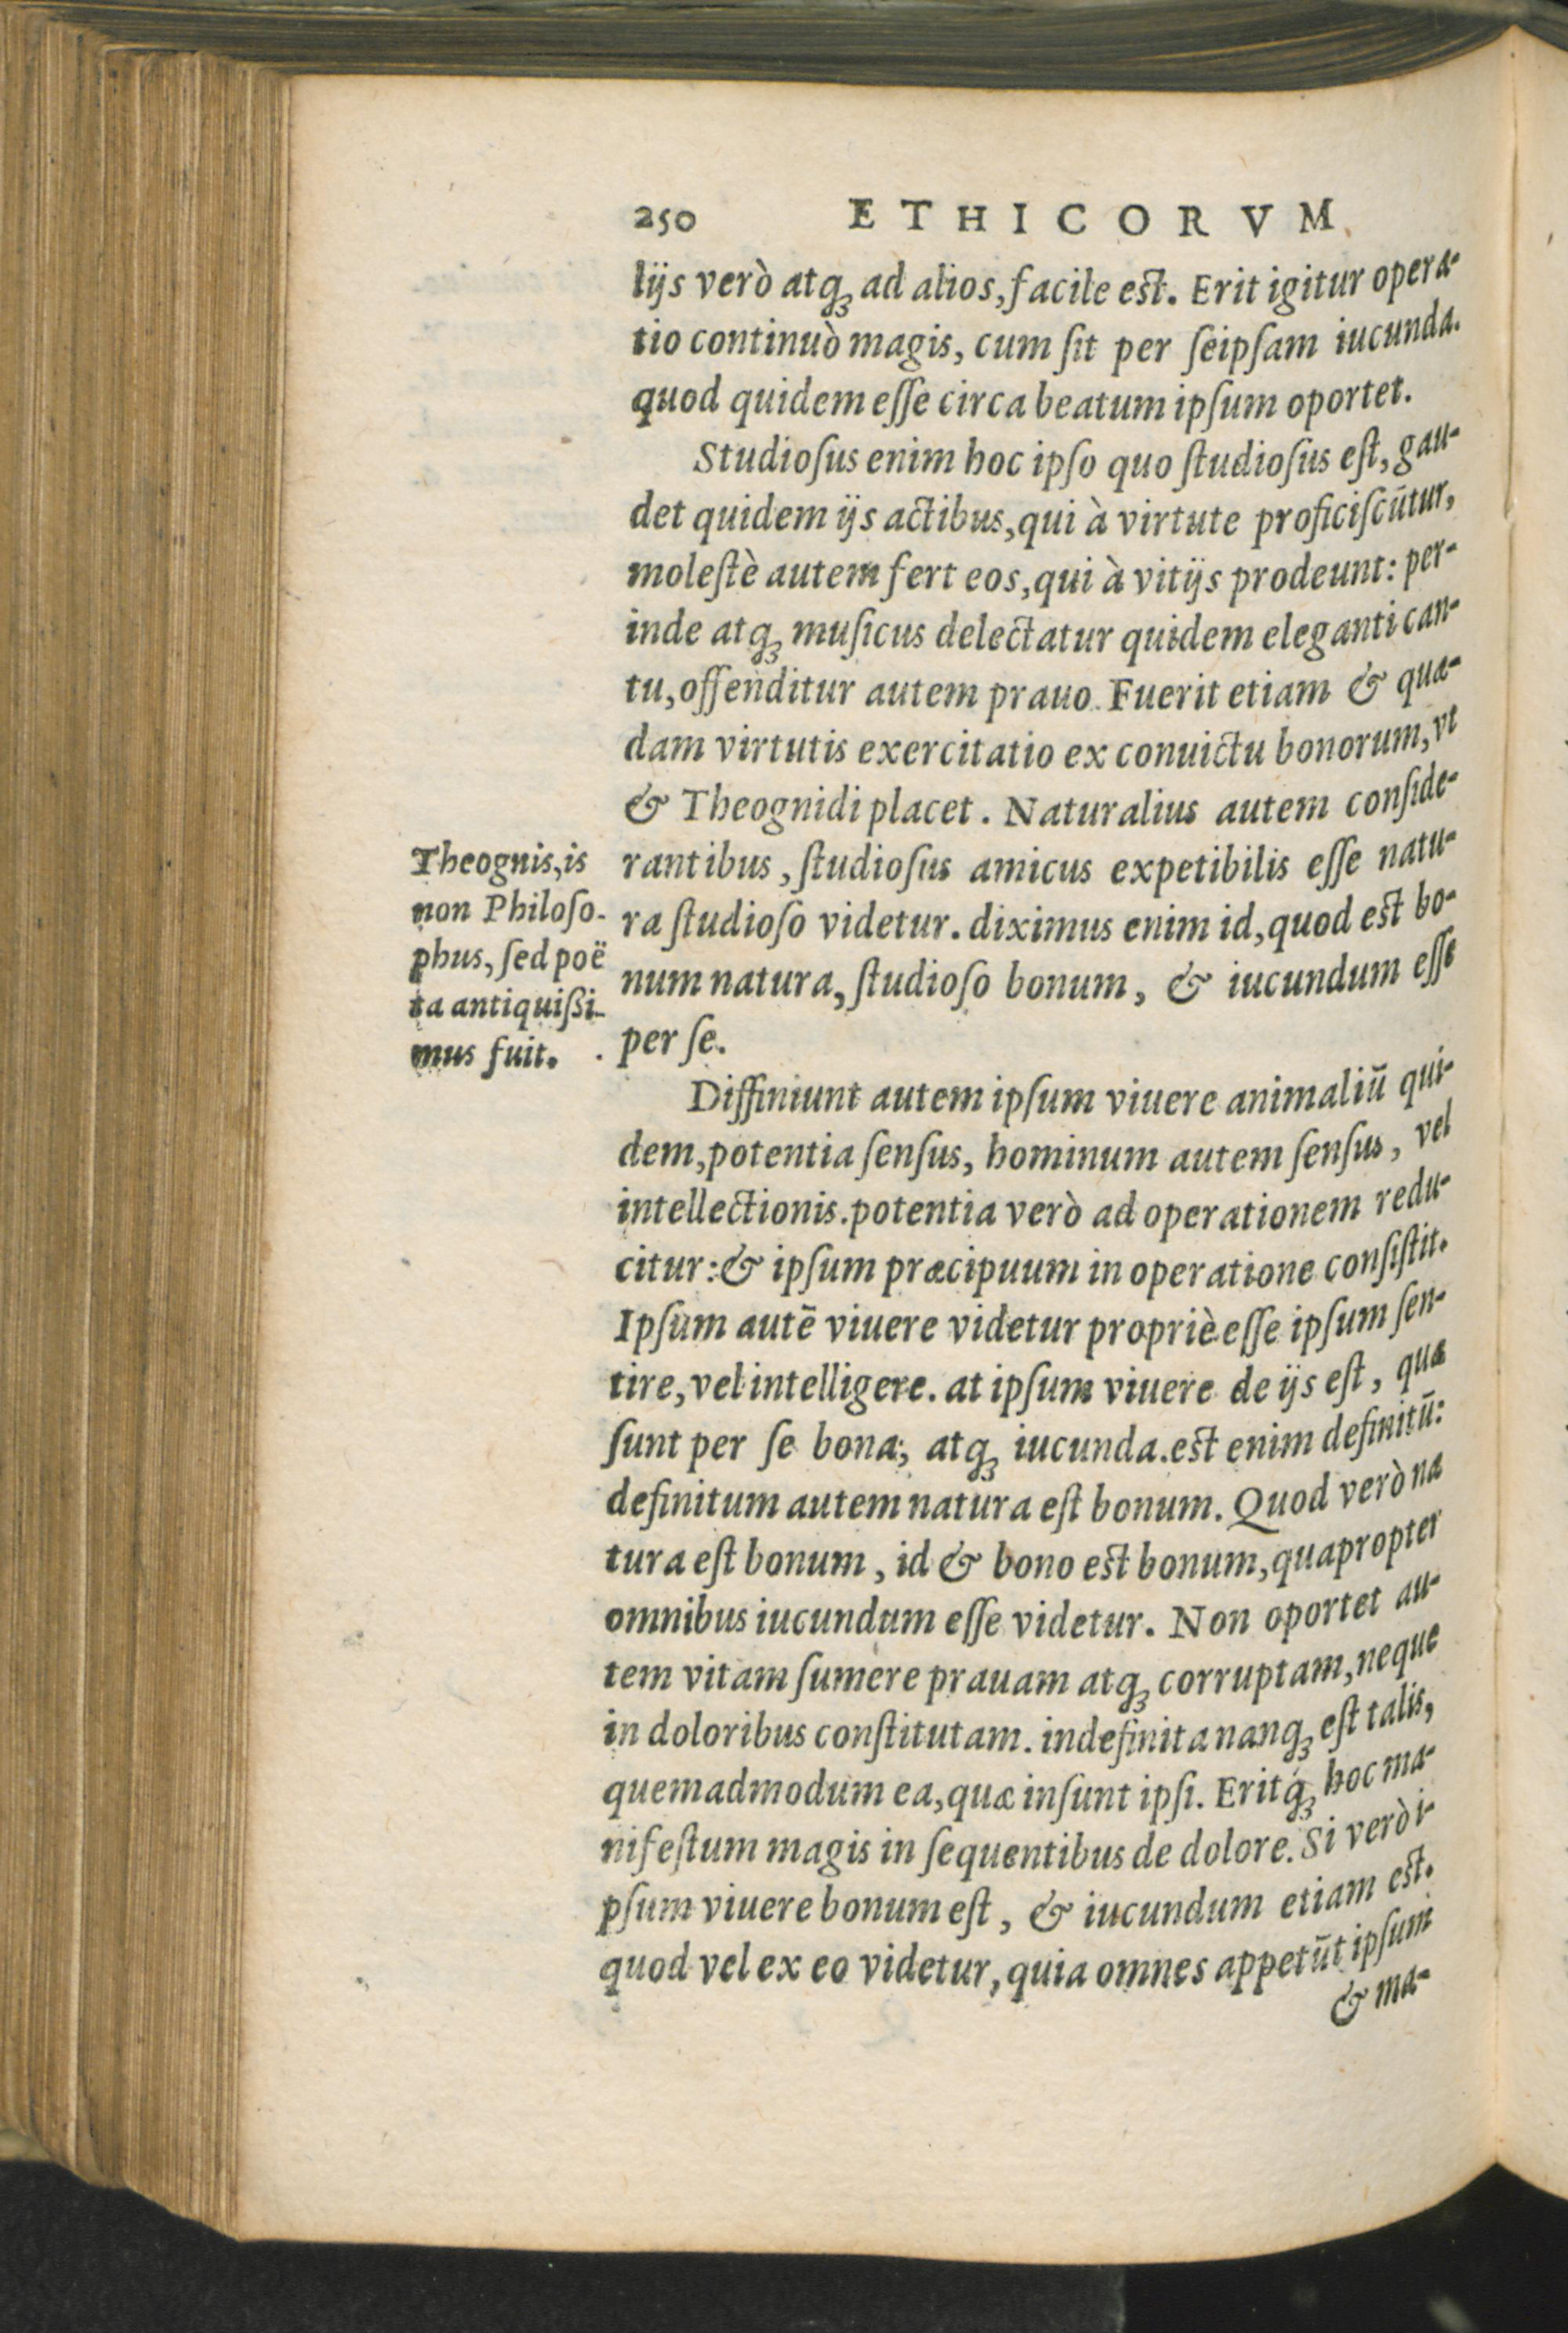 250 ETHICORVM
lijs verò atq́ȝ ad alios, facile est. Erit igitur opera-
tio continuò magis, cum ſit per ſeipſam iucunda.
quod quidem eſſe circa beatum ipſum oportet.
Studioſus enim hoc ipſo quo ſtudioſus eſt, gau-
det quidem ijs actibus, qui à virtute proficiſcūtur,
moleſtè autem fert eos, qui à vitijs prodeunt: per-
inde atqȝ muſicus delectatur quidem eleganti can-
tu, offenditur autem prauo. Fuerit etiam & quæ-
dam virtutis exercitatio ex conuictu bonorum, vt
& Theognidi placet. Naturalius autem conſide-
rantibus, ſtudioſus amicus expetibilis eſſe natu-
ra ſtudioſo videtur. diximus enim id, quod est bo-
num natura, ſtudioſo bonum, & iucundum eſſe
per ſe.
Theognis, is
non Philoſo-
phus, ſed poë
ta antiquißi-
mus fuit.
Diffiniunt autem ipſum viuere animaliū qui-
dem, potentia ſenſus, hominum autem ſenſus, vel
intellectionis. potentia verò ad operationem redu-
citur: & ipſum præcipuum in operatione conſiſtit.
Ipſum autē viuere videtur propriè eſſe ipſum ſen-
tire, vel intelligere. at ipſum viuere de ijs eſt, quæ
ſunt per ſe bona, atqȝ iucunda. est enim definitū:
definitum autem natura eſt bonum. Quod verò na
tura eſt bonum, id & bono est bonum, quapropter
omnibus iucundum eſſe videtur. Non oportet au-
tem vitam ſumere prauam atqȝ corruptam, neque
in doloribus conſtitutam. indefinita nanqȝ eſt talis,
quemadmodum ea, quæ inſunt ipſi. Eritq́ȝ hoc ma-
nifeſtum magis in ſequentibus de dolore. Si verò i-
pſum viuere bonum eſt, & iucundum etiam est.
quod vel ex eo videtur, quia omnes appetūt ipſum
& ma-